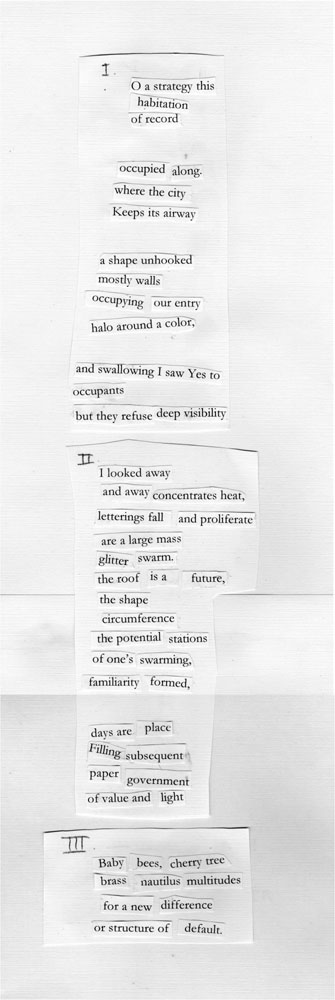 I.
O a strategy this
habitation
of record
occupied along.
where the city
Keeps its airway
a shape unhooked
mostly walls
occupying our entry
halo around a color,
and swallowing I saw Yes to
occupants
but they refuse deep visibility
II
I looked away
and away concentrates heat,
letterings fall and proliferate
are a large mass
glitter swarm.
the roof is a future,
the shape
circumference
the potential stations
of one's swarming,
familiarity formed,
days are place
Filling subsequent
paper government
of value and light
III
Baby bees, cherry tree
brass nautilus multitudes
for a new difference
or structure of default.